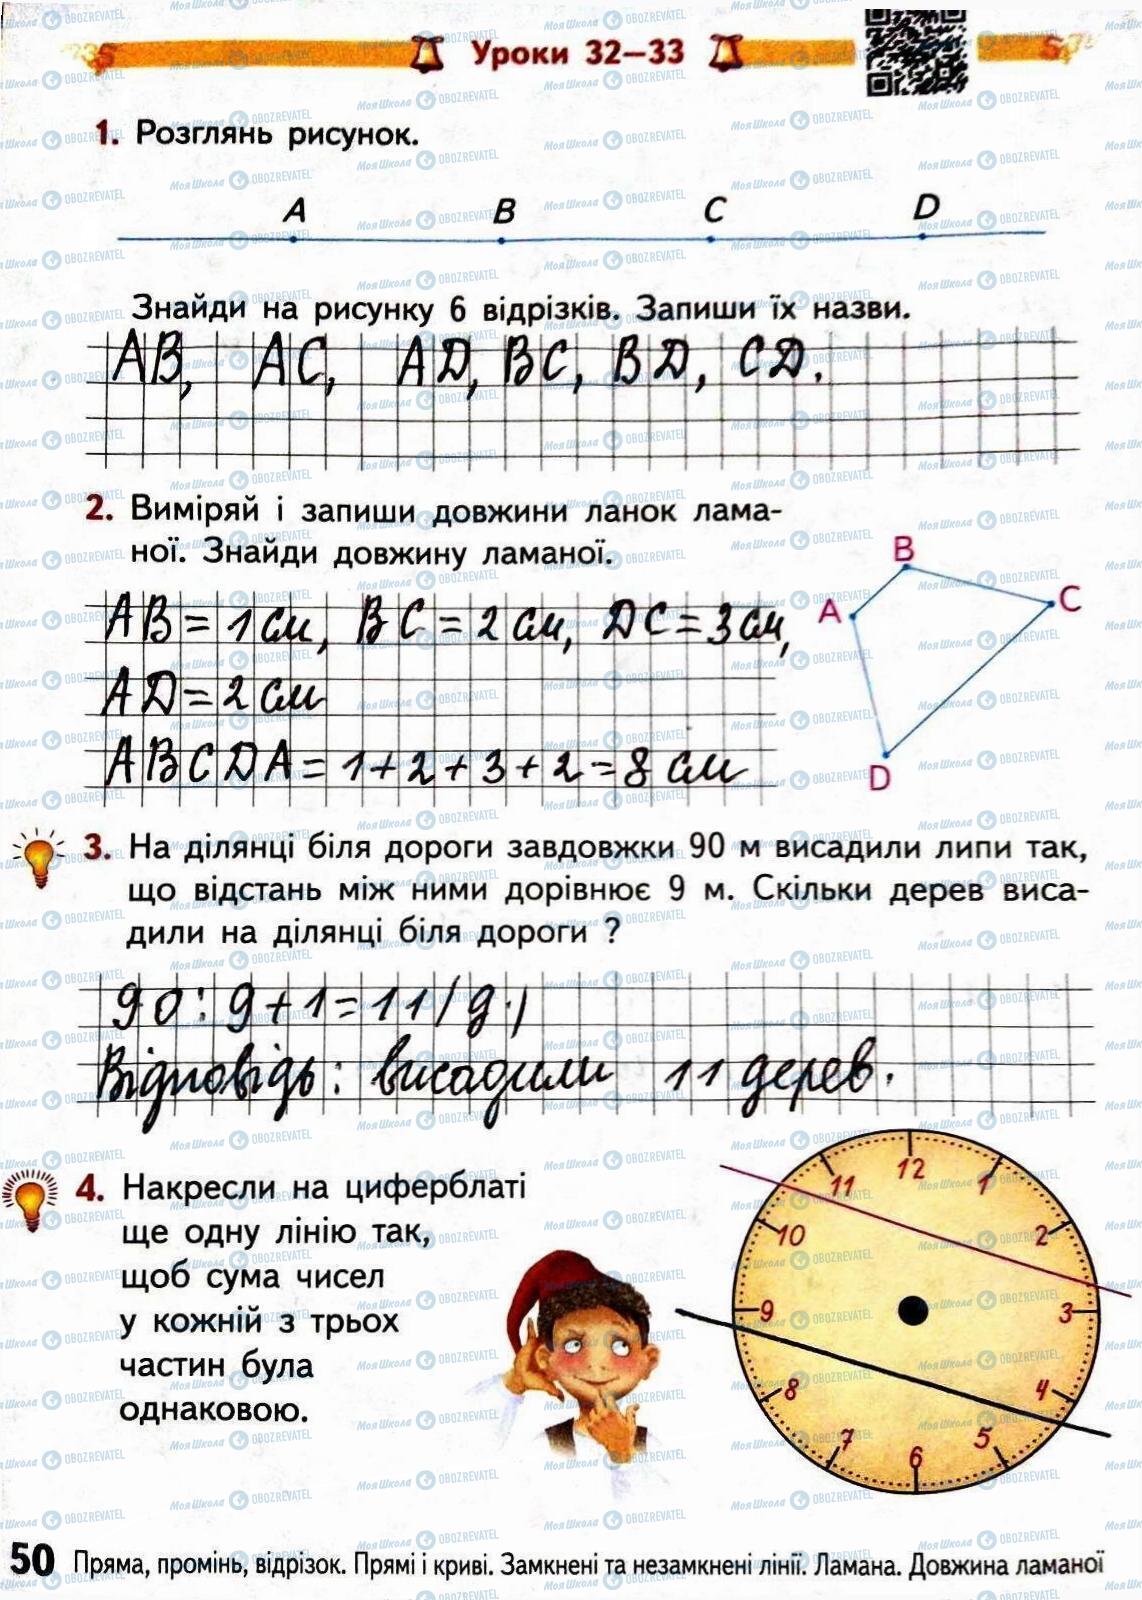 Уроки 32—33
1. Розглянь рисунок.
A B C D
Знайди на рисунку 6 відрізків. Запиши їх назви.
AB, AC, AD, BC, BD, CD.
2. Виміряй і запиши довжини ланок лама-
ної. Знайди довжину ламаної.
AB = 1 см, BC = 2 см, DC = 3 см,
AD = 2 см
ABCDA = 1+2+3+2=8 см
A B C D
3. На ділянці біля дороги завдовжки 90 м висадили липи так,
що відстань між ними дорівнює 9 м. Скільки дерев виса-
дили на ділянці біля дороги ?
90:9+1=11(д.)
Відповідь: висадили 11 дерев.
4. Накресли на циферблаті
ще одну лінію так,
щоб сума чисел
у кожній з трьох
частин була
однаковою.
12 1 2 3 4 5 6 7 8 9 10 11
50 Пряма, промінь, відрізок. Прямі і криві. Замкнені та незамкнені лінії. Ламана. Довжина ламаної
МояШкола OBOZREVATEL